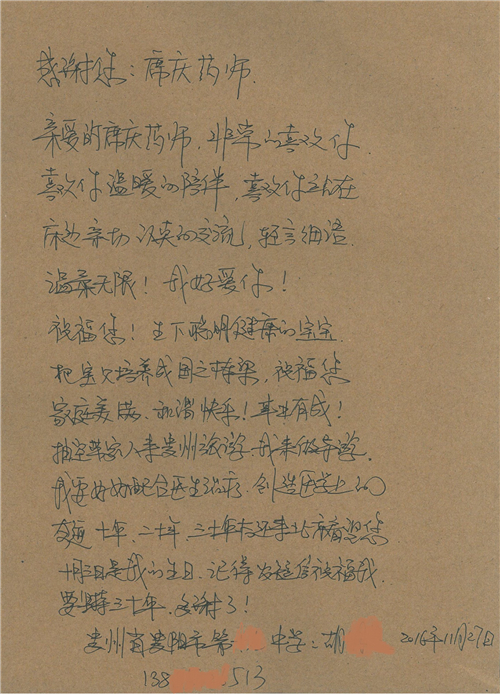 感谢您：席庆药师.
亲爱的席庆药师，非常的喜欢你.
喜欢你温暖的陪伴，喜欢你站在
床边亲切 的交流，轻言细语.
温柔无限！我好爱你！
祝福您！生下聪明健康的宝宝.
把宝贝培养成国之栋梁，祝福您
家庭美满、和谐快乐！事业有成！
抽空带家人来贵州旅游，我来做导游.
我要好好配合医生治疗，创造医学上的
十年、二十年、三十年 还来北京看望您
十月三日是我的生日，记得发短信祝福我.
要 三十年. 多谢了！
贵州省贵阳市第 中学：胡 2016年11月27日
138 513